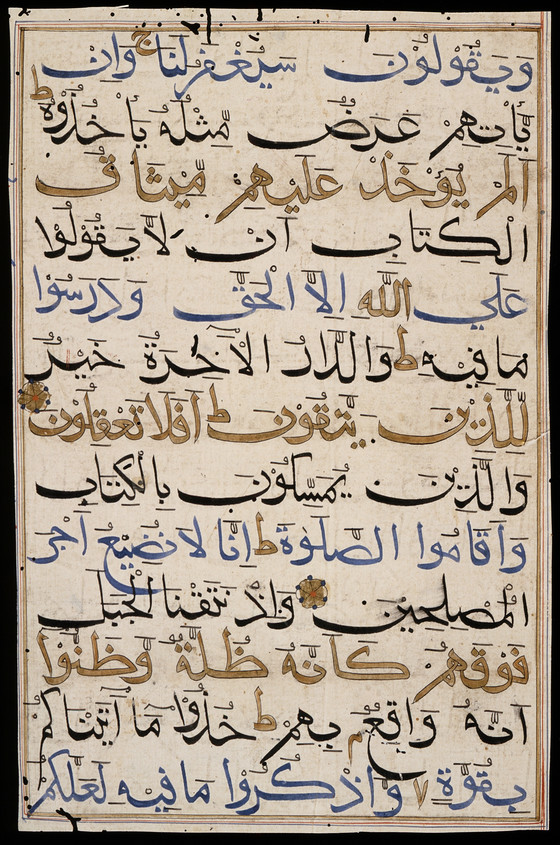 وَيَقُولُونَ سَيُغْفَرُ لَنَا ج وَاِنْ
يَأْتِهِمْ عَرَضٌ مِّثْلُهُ يَأْخُذُوهُ ط
اَلَمْ يُؤْخَذْ عَلَيْهِمْ مِّيثَاقُ
الْكِتَابِ اَنْ لَا يَقُولُوا
عَلَي اللّٰهِ اِلَّا الْحَقَّ وَدَرَسُوا
مَا فِيهِ ط وَالدَّارُ الْاٰخِرَةُ خَيْرٌ
لِّلَّذِينَ يَتَّقُونَ ط اَفَلَا تَعْقِلُونَ
وَالَّذِينَ يُمَسِّكُونَ بِالْكِتَابِ
وَاَقَامُوا الصَّلٰوةَ ط اِنَّا لَا نُضِيعُ اَجْرَ
الْمُصْلِحِينَ وَاِذْ نَتَقْنَا الْجَبَلَ
فَوْقَهُمْ كَاَنَّهُ ظُلَّةٌ وَّظَنُّوا
اَنَّهُ وَاقِعٌ بِهِمْ ط خُذُوا مَا اٰتَيْنَاكُمْ
بِقُوَّةٍ وَّاذْكُرُوا مَا فِيهِ لَعَلَّكُمْ